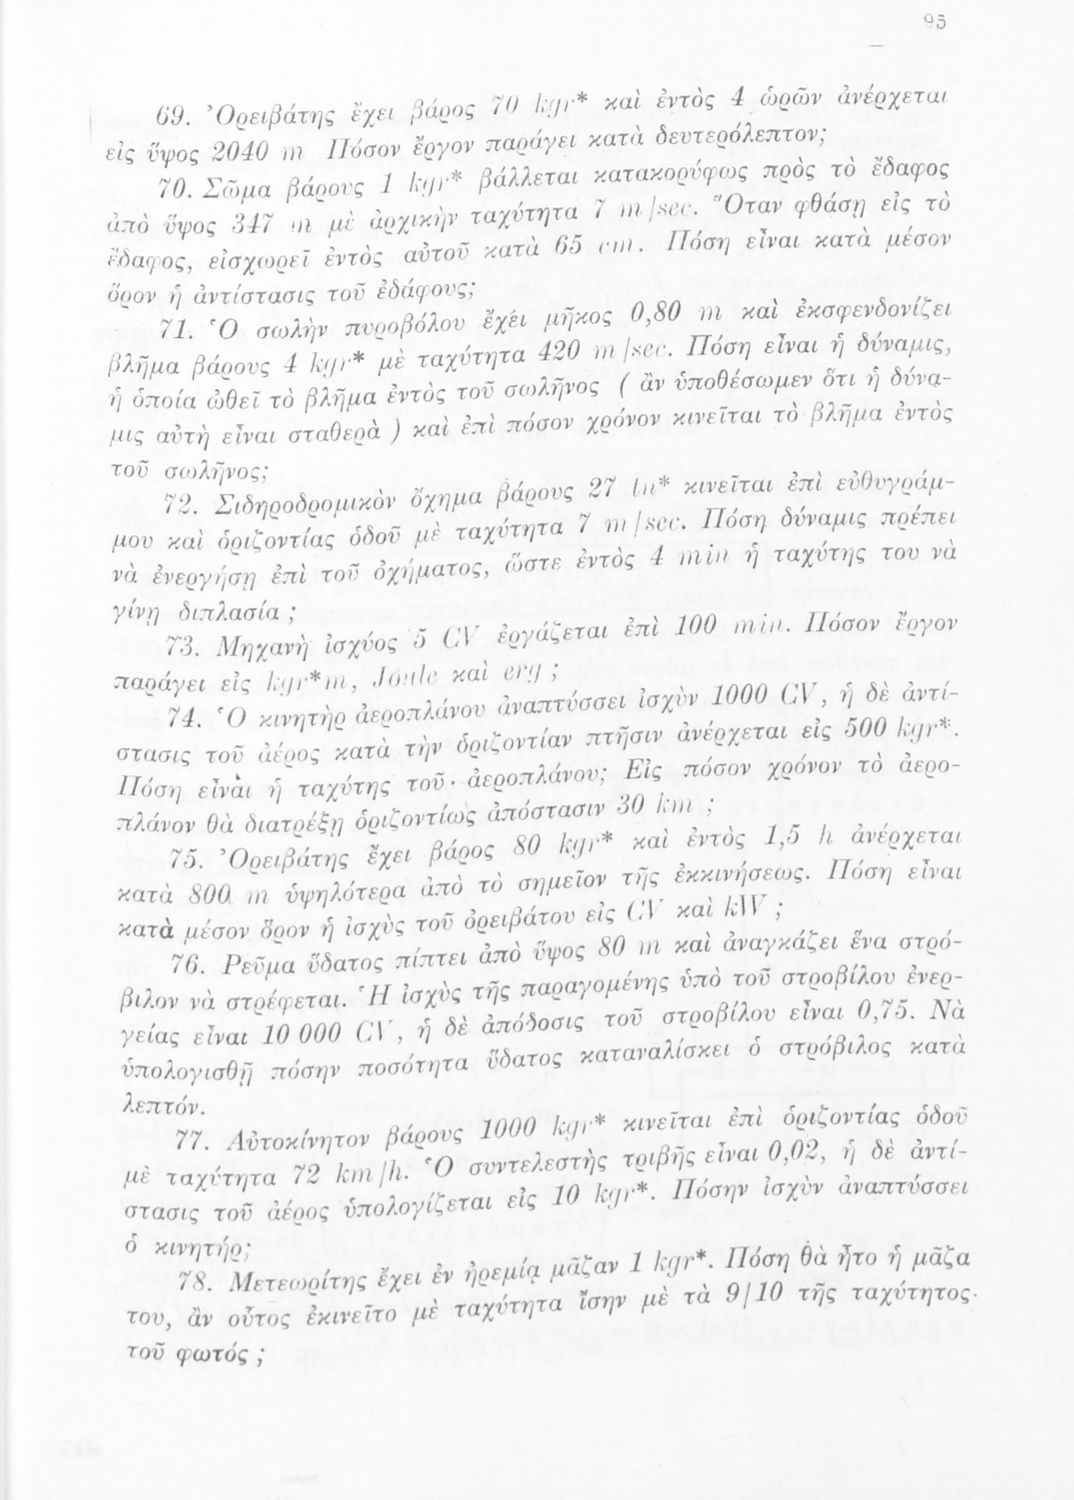 95
69. Ὀρειβάτης ἔχει βάρος 70 kgr* καὶ ἐντὸς 4 ὡρῶν ἀνέρχεται
εἰς ὕψος 2040 m Πόσον ἔργον παράγει κατὰ δευτερόλεπτον;
70. Σῶμα βάρους 1 kgr* βάλλεται κατακορύφως πρὸς τὸ ἔδαφος
ἀπὸ ὕψος 347 m μὲ ἀρχικὴν ταχύτητα 7 m/sec. Ὅταν φθάσῃ εἰς τὸ
ἔδαφος, εἰσχωρεῖ ἐντὸς αὐτοῦ κατὰ 65 cm. Πόση εἶναι κατὰ μέσον
ὅρον ἡ ἀντίστασις τοῦ ἐδάφους;
71. Ὁ σωλὴν πυροβόλου ἔχει μῆκος 0,80 m καὶ ἐκσφενδονίζει
βλῆμα βάρους 4 kgr* μὲ ταχύτητα 420 m/sec. Πόση εἶναι ἡ δύναμις,
ἡ ὁποία ὠθεῖ τὸ βλῆμα ἐντὸς τοῦ σωλῆνος ( ἂν ὑποθέσωμεν ὅτι ἡ δύνα-
μις αὐτὴ εἶναι σταθερὰ ) καὶ ἐπὶ πόσον χρόνον κινεῖται τὸ βλῆμα ἐντὸς
τοῦ σωλῆνος;
72. Σιδηροδρομικὸν ὄχημα βάρους 27 tn* κινεῖται ἐπὶ εὐθυγράμ-
μου καὶ ὁριζοντίας ὁδοῦ μὲ ταχύτητα 7 m/sec. Πόση δύναμις πρέπει
νὰ ἐνεργήσῃ ἐπὶ τοῦ ὀχήματος, ὥστε ἐντὸς 4 min ἡ ταχύτης του νὰ
γίνῃ διπλασία ;
73. Μηχανὴ ἰσχύος 5 CV ἐργάζεται ἐπὶ 100 min. Πόσον ἔργον
παράγει εἰς kgr*m, Joule καὶ erg ;
74. Ὁ κινητὴρ ἀεροπλάνου ἀναπτύσσει ἰσχὺν 1000 CV, ἡ δὲ ἀντί-
στασις τοῦ ἀέρος κατὰ τὴν ὁριζοντίαν πτῆσιν ἀνέρχεται εἰς 500 kgr*.
Πόση εἶναι ἡ ταχύτης τοῦ ἀεροπλάνου; Εἰς πόσον χρόνον τὸ ἀερο-
πλάνον θὰ διατρέξῃ ὁριζοντίως ἀπόστασιν 30 km ;
75. Ὀρειβάτης ἔχει βάρος 80 kgr* καὶ ἐντὸς 1,5 h ἀνέρχεται
κατὰ 800 m ὑψηλότερα ἀπὸ τὸ σημεῖον τῆς ἐκκινήσεως. Πόση εἶναι
κατὰ μέσον ὅρον ἡ ἰσχὺς τοῦ ὀρειβάτου εἰς CV καὶ kW ;
76. Ρεῦμα ὕδατος πίπτει ἀπὸ ὕψος 80 m καὶ ἀναγκάζει ἕνα στρό-
βιλον νὰ στρέφεται. Ἡ ἰσχὺς τῆς παραγομένης ὑπὸ τοῦ στροβίλου ἐνερ-
γείας εἶναι 10 000 CV, ἡ δὲ ἀπόδοσις τοῦ στροβίλου εἶναι 0,75. Νὰ
ὑπολογισθῇ πόσην ποσότητα ὕδατος καταναλίσκει ὁ στρόβιλος κατὰ
λεπτόν.
77. Αὐτοκίνητον βάρους 1000 kgr* κινεῖται ἐπὶ ὁριζοντίας ὁδοῦ
μὲ ταχύτητα 72 km/h. Ὁ συντελεστὴς τριβῆς εἶναι 0,02, ἡ δὲ ἀντί-
στασις τοῦ ἀέρος ὑπολογίζεται εἰς 10 kgr*. Πόσην ἰσχὺν ἀναπτύσσει
ὁ κινητήρ;
78. Μετεωρίτης ἔχει ἐν ἠρεμίᾳ μᾶζαν 1 kgr*. Πόση θὰ ἦτο ἡ μᾶζα
του, ἂν οὗτος ἐκινεῖτο μὲ ταχύτητα ἴσην μὲ τὰ 9/10 τῆς ταχύτητος
τοῦ φωτός ;